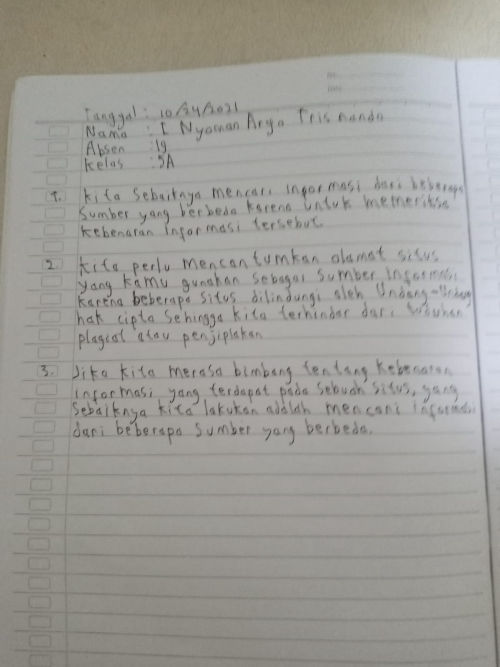 Tanggal : 10/24/2021
Nama : I Nyoman Arya Trisnanda
Absen : 19
Kelas : 5A
1. Kita sebaiknya mencari informasi dari beberapa
sumber yang berbeda karena untuk memeriksa
kebenaran informasi tersebut.
2. Kita perlu mencantumkan alamat situs
yang kamu gunakan sebagai sumber informasi
karena beberapa situs dilindungi oleh Undang-Undang
hak cipta sehingga kita terhindar dari tuduhan
plagiat atau penjiplakan
3. Jika kita merasa bimbang tentang kebenaran
informasi yang terdapat pada sebuah situs, yang
sebaiknya kita lakukan adalah mencari informasi
dari beberapa sumber yang berbeda.